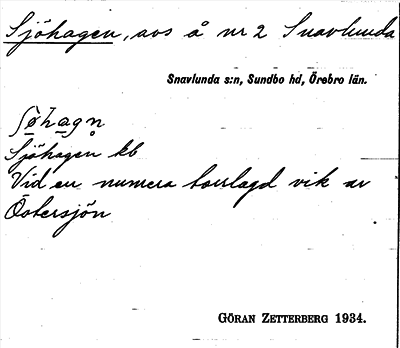 Sjöhagen, avs å nr 2 Snavlunda
Snavlunda s:n, Sundbo hd, Örebro län.
Sjöhagen kb
Vid en numera torrlagd vik av
Östersjön
GÖRAN ZETTERBERG 1934.